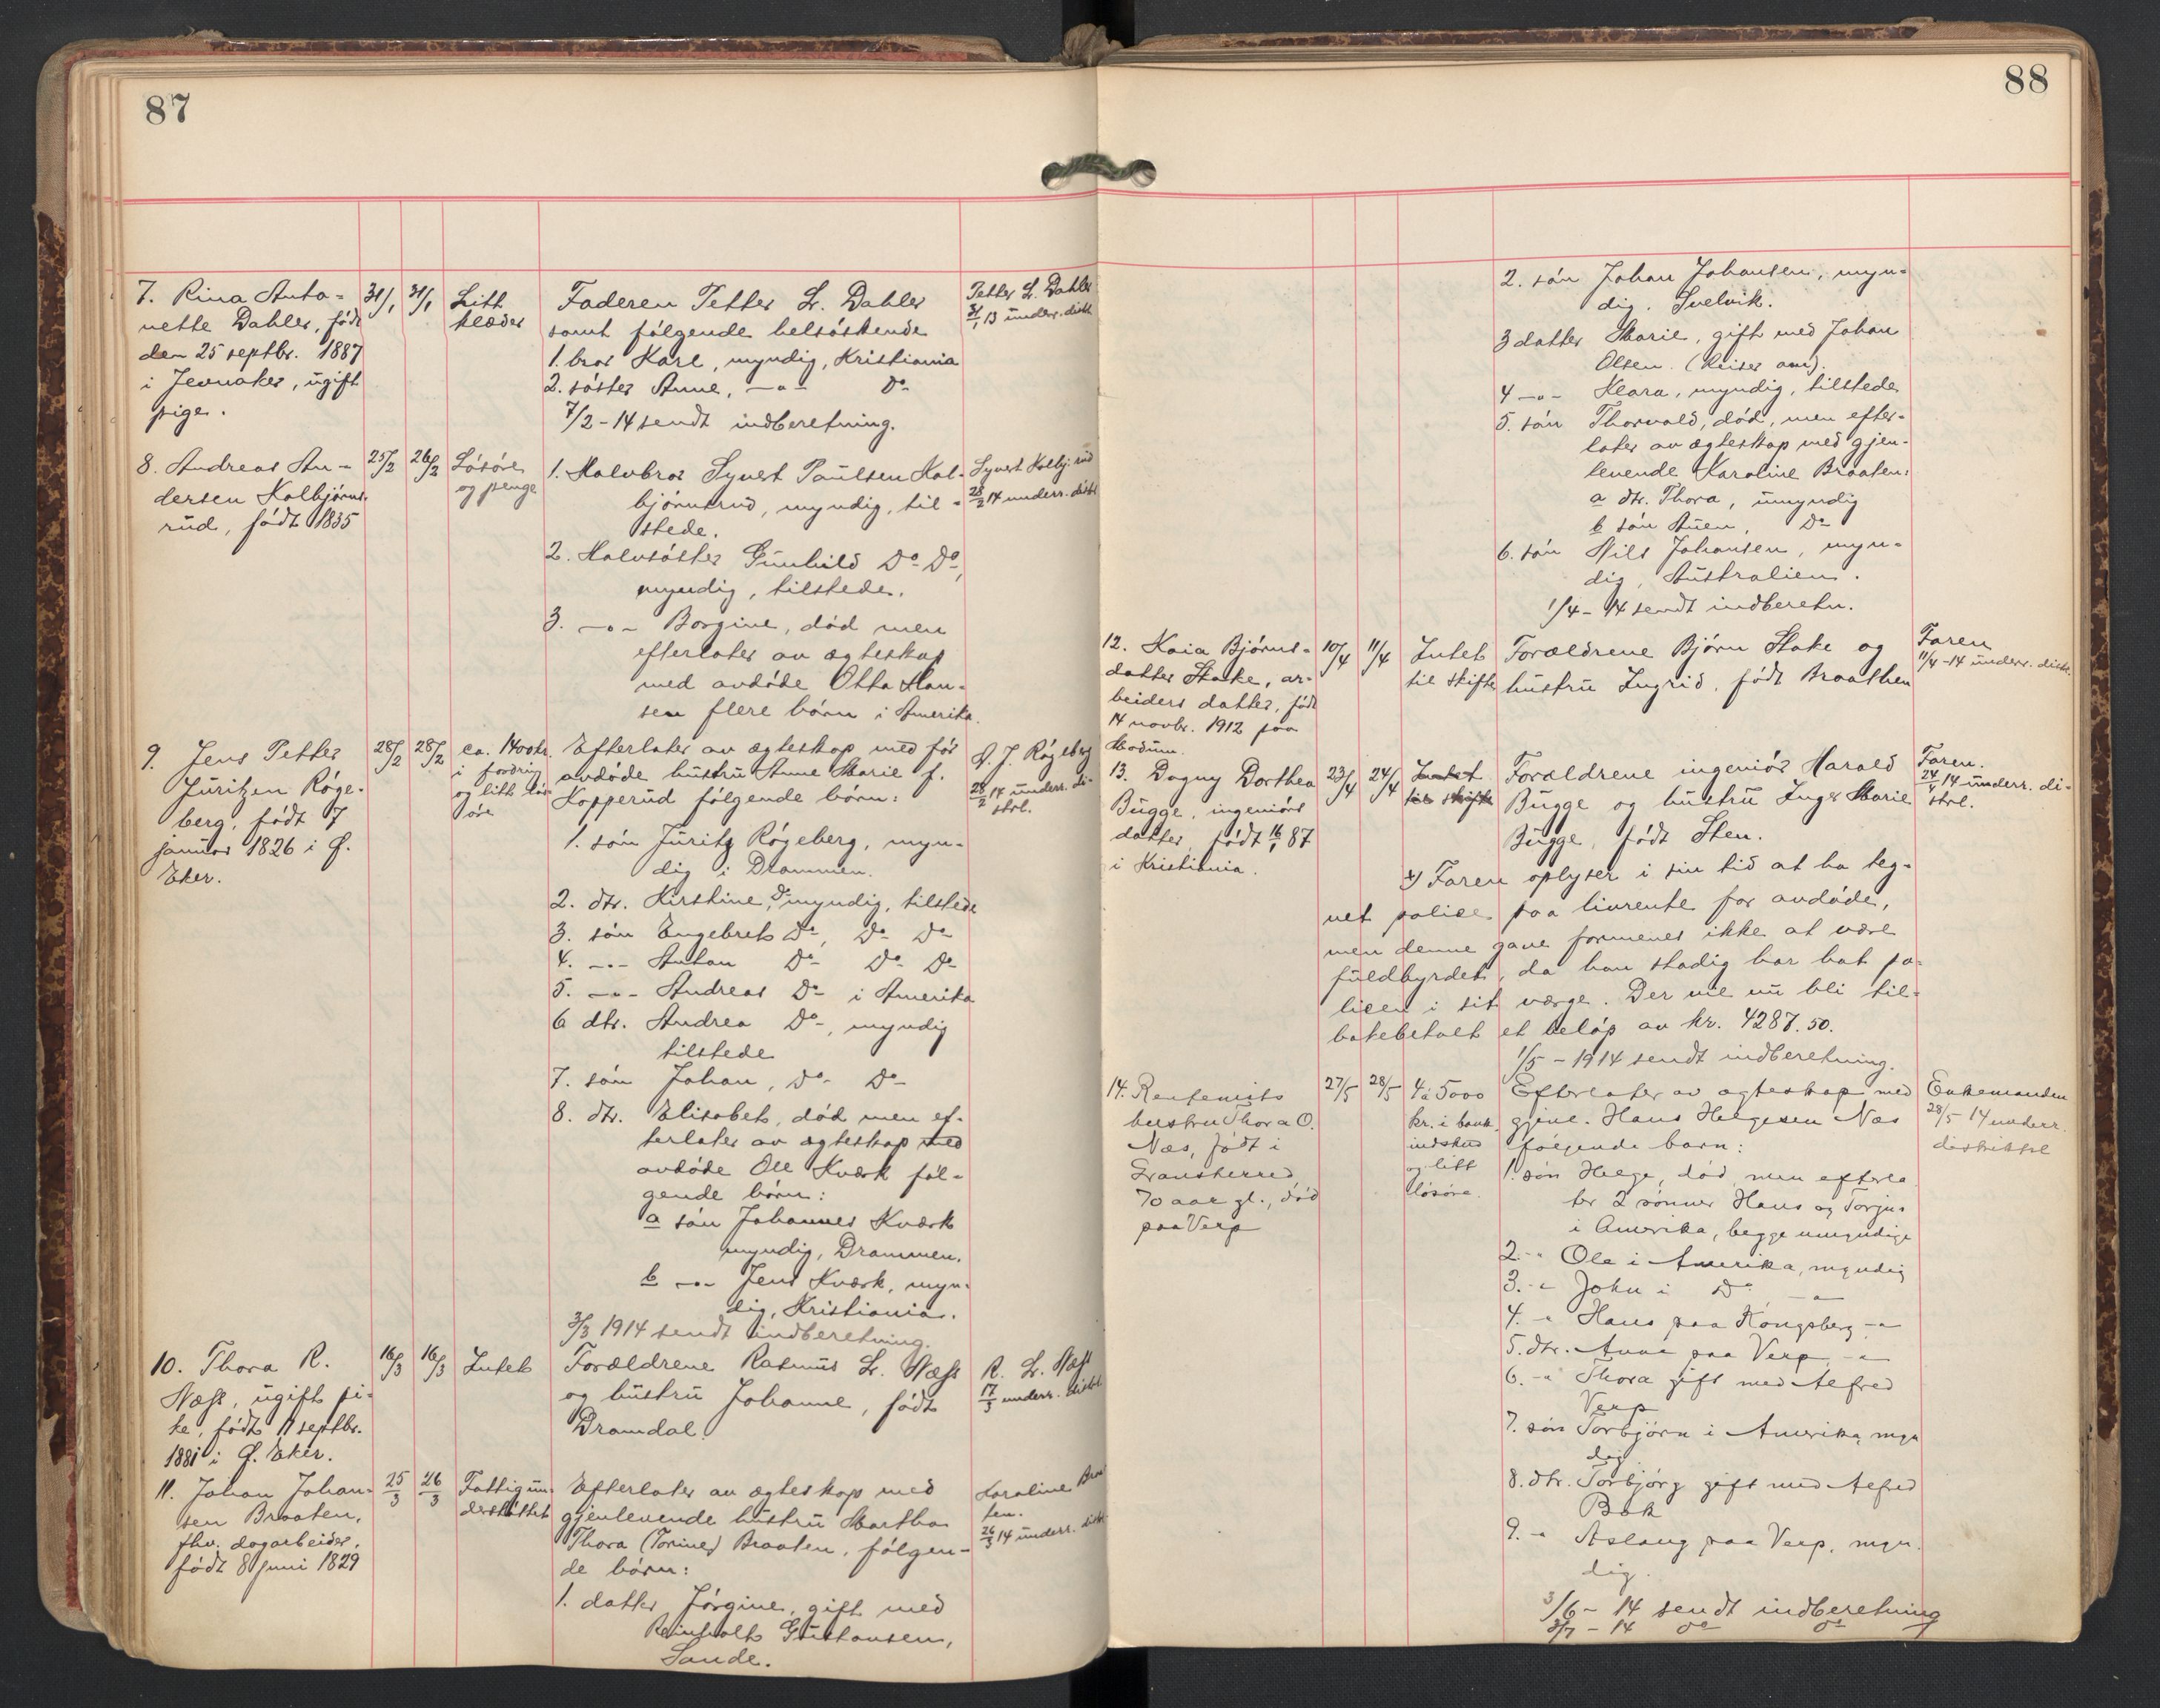 87
7. Rina Anto-
nette Dahler, født
den 25 septbr. 1887
i Jevnaker, ugift
pige.
31/1
31/1
Litt
klæder
Faderen Petter L. Dahler
samt følgende helsøskende
1. bror Karl, myndig, Kristiania
2. søster Anne, -"- Do
7/2-14 sendt indberetning.
Petter L. Dahler
31/1 13 underr. distr.
8. Andreas An-
dersen Kolbjørns-
rud, født 1835
25/2
26/2
Løsøre
og penge
1. Halvbror Syvert Paulsen Kol-
bjørnsrud, myndig, til-
stede.
2. Halvsøster Gunhild Do Do,
myndig, tilstede.
3. -"- Borgine, død men
efterlater av ægteskap
med avdøde Otto Han-
sen flere børn i Amerika.
Syvert Kolbj.rud
28/2 14 underr. distr.
9. Jens Petter
Juritzen Røge-
berg, født 7
januar 1826 i Ø.
Eker.
28/2
28/2
ca. 1400 kr.
i fordring
og litt løs-
øre
Efterlater av ægteskap med før
avdøde hustru Anne Marie f.
Kopperud følgende børn:
1. søn Juritz Røgeberg, myn-
dig i Drammen.
2. dtr. Kirstine, Do myndig, tilstede
3. søn Engebret Do, Do Do
4. -"- Anton Do Do Do
5. -"- Andreas Do i Amerika
6 dtr. Andrea Do, myndig
tilstede
7. søn Johan, Do Do
8. dtr. Elisabet, død men ef-
terlater av ægteskap med
avdøde Ole Kværk føl-
gende børn:
a søn Johannes Kværk
myndig, Drammen.
b -"- Jens Kværk, myn-
dig, Kristiania.
3/3 1914 sendt indberetning.
J. Røgeberg
28/2 14 underr. di-
strl.
10. Thora R.
Næss, ugift pi-
ke, født 11 septbr.
1881 i Ø. Eker.
16/3
16/3
Intet
Forældrene Rasmus L. Næss
og hustru Johanne, født
Dramdal.
R. L. Næss
17/3 underr. distr.
11. Johan Johan-
sen Braaten,
fhv. dagarbeider,
født 8 juni 1829
25/3
26/3
Fattigun-
derstøttet
Efterlater av ægteskap med
gjenlevende hustru Martha
Thora (Torine) Braaten, følgen-
de børn:
1. datter Jørgine, gift med
Reinholt Gustausen,
Sande.
Karoline Braa-
ten.
26/3 14 underr. distr.
88
2. søn Johan Johansen, myn-
dig, Svelvik.
3 datter Marie, gift med Johan
Olsen. (Reiser om).
4 -"- Klara, myndig, tilstede
5. søn Thorvald, død, men efter-
later av ægteskap med gjen-
levende Karoline Braaten:
a dtr. Thora, umyndig
b søn Auen, Do
6. søn Nils Johansen, myn-
dig, Australien.
1/4-14 sendt indberetn.
12. Kaia Bjørns-
datter Stake, ar-
beiders datter, født
14 novbr. 1912 paa
Modum.
10/4
11/4
Intet
til skifte
Forældrene Bjørn Stake og
hustru Ingrid, født Braathen
Faren
11/4-14 underr. distr.
13. Dagny Dorthea
Bugge, ingeniørs
datter, født 16/1 87
i Kristiania.
23/4
24/4
Intet
til skifte
Forældrene ingeniør Harald
Bugge og hustru Inger Marie
Bugge, født Sten.
x) Faren oplyser i sin tid at ha teg-
net police paa livrente for avdøde,
men denne gave formenes ikke at være
fuldbyrdet, da han stadig har hat po-
licen i sit værge. Der vil nu bli til-
bakebetalt et beløp av kr. 4287.50.
1/5-1914 sendt indberetning.
Faren.
24/4 14 underr. di-
strl.
14. Rentenists
hustru Thora O.
Næs, født i
Gransherred
70 aar gl., død
paa Verp
27/5
28/5
4 à 5000
kr. i bank-
indskud
og litt
løsøre.
Efterlater av ægteskap med
gjenl. Hans Helgesen Næs
følgende barn:
1. søn Helge, død, men efterla-
ter 2 sønner Hans og Torjus
i Amerika, begge umyndige
2. -" Ole i Amerika, myndig
3. -" John i Do -"-
4. -" Hans paa Kongsberg -"-
5. dtr. Anna paa Verp -"-
6. -" Thora gift med Alfred
Verp
7. søn Torbjørn i Amerika, myn
dig
8. dtr. Torbjørg gift med Alfred
Bak
9. -" Aslaug paa Verp, myn-
dig.
3/6-14 sendt indberetning
3/7-14 Do Do
Enkemanden
28/5 14 underr.
distriktsl